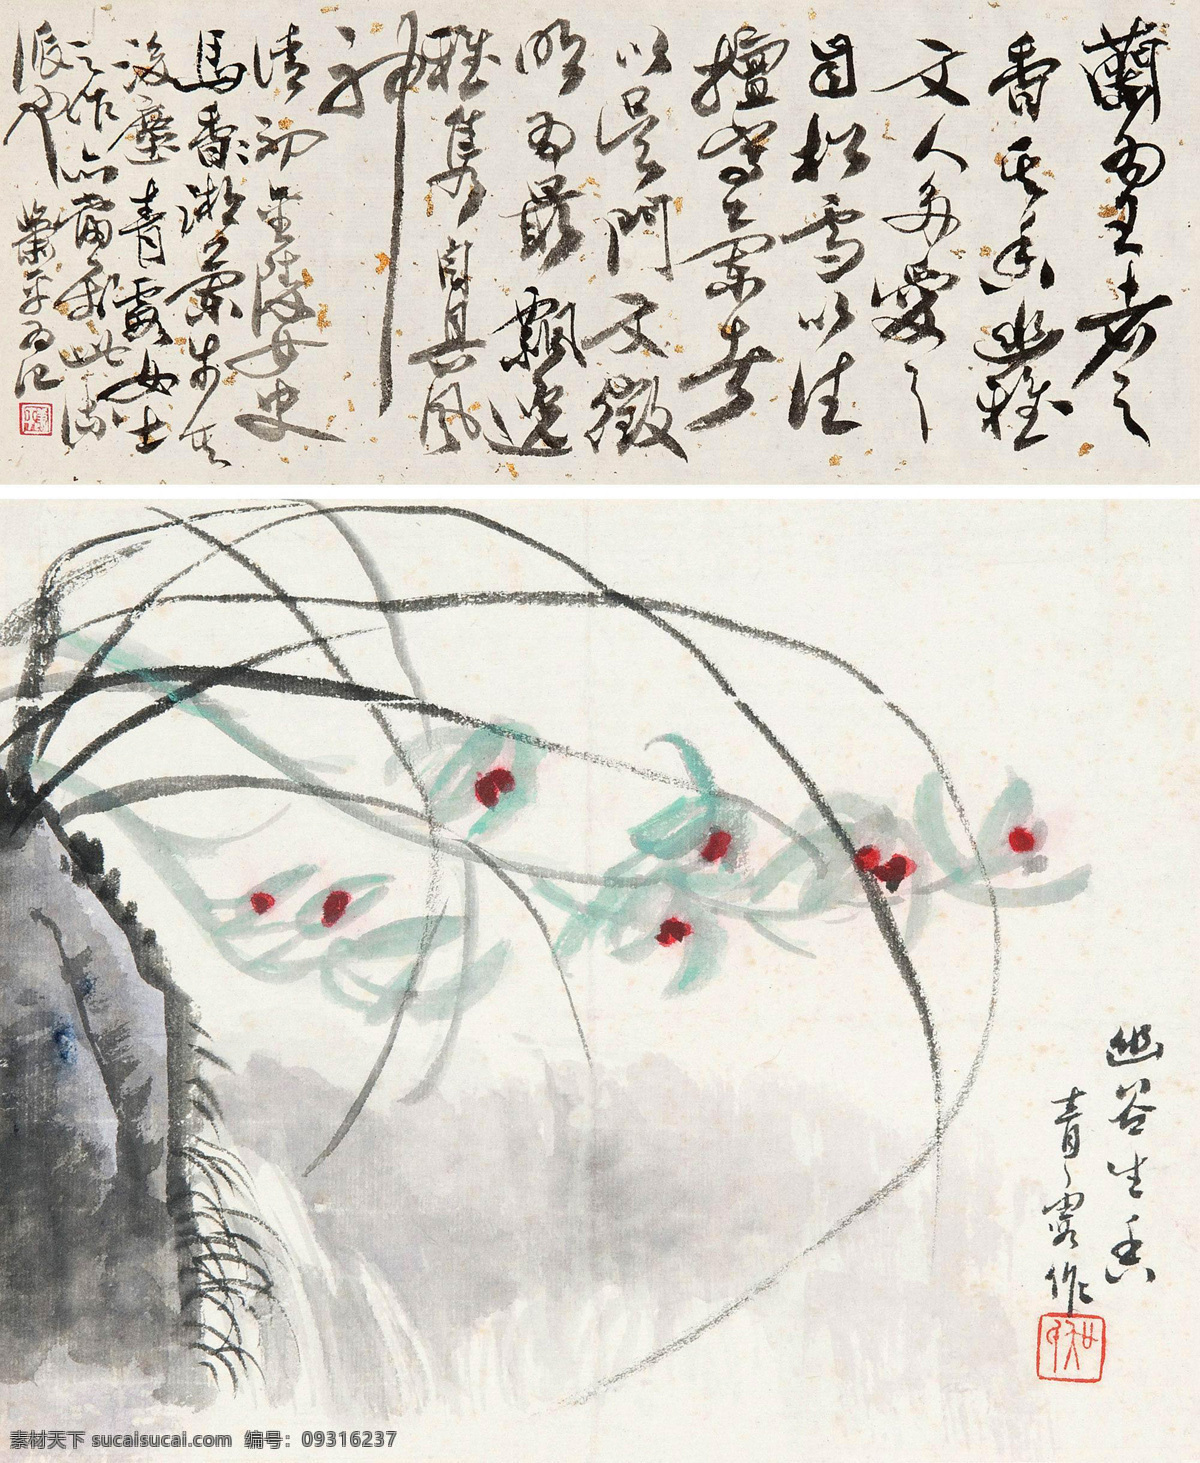 蘭為王者之
香其香幽雅
文人多愛之
自松雪以
擅寫蘭者
以吳門文徵
明為最飄逸
雅雋自具風
神
清初金陵女史
馬香湘蘭步其
後塵青霞女士
之作亦屬此
派也 蕭平為記
幽谷生香
青霞作
素材天下 sucaisucai.com 编号：09316237